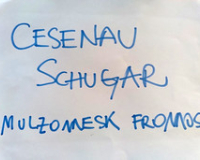 CESENAU
SCHUGAR
MULZOMESK FROMOS